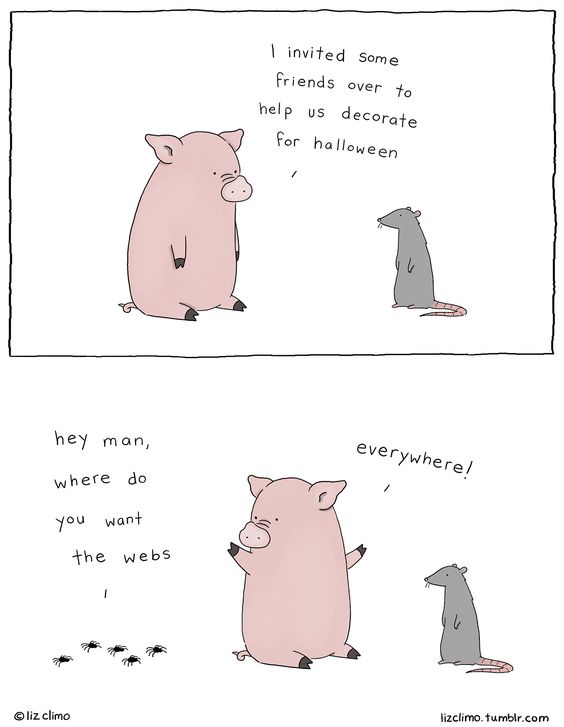 I invited some
friends over to
help us decorate
for halloween
hey man,
where do
you want
the webs
everywhere!
©liz climo
lizclimo.tumblr.com